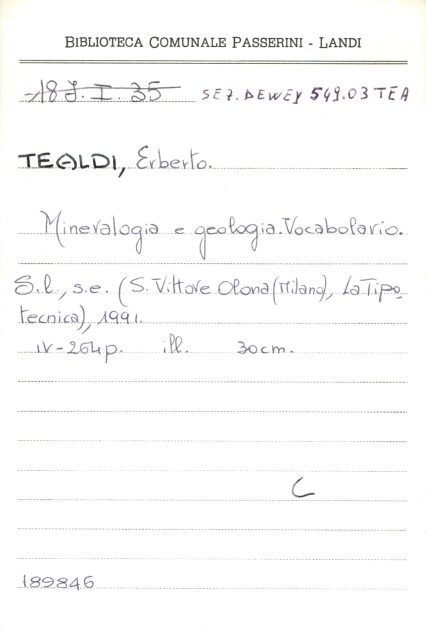 BIBLIOTECA COMUNALE PASSERINI - LANDI
18 J. I. 35 SEZ. DEWEY 549.03 TEA
TEALDI, Erberto.
Mineralogia e geologia. Vocabolario.
S.l., s.e. (S. Vittore Olona (Milano), La Tipo
tecnica), 1991.
IV-264p. ill. 30cm.
C
189846